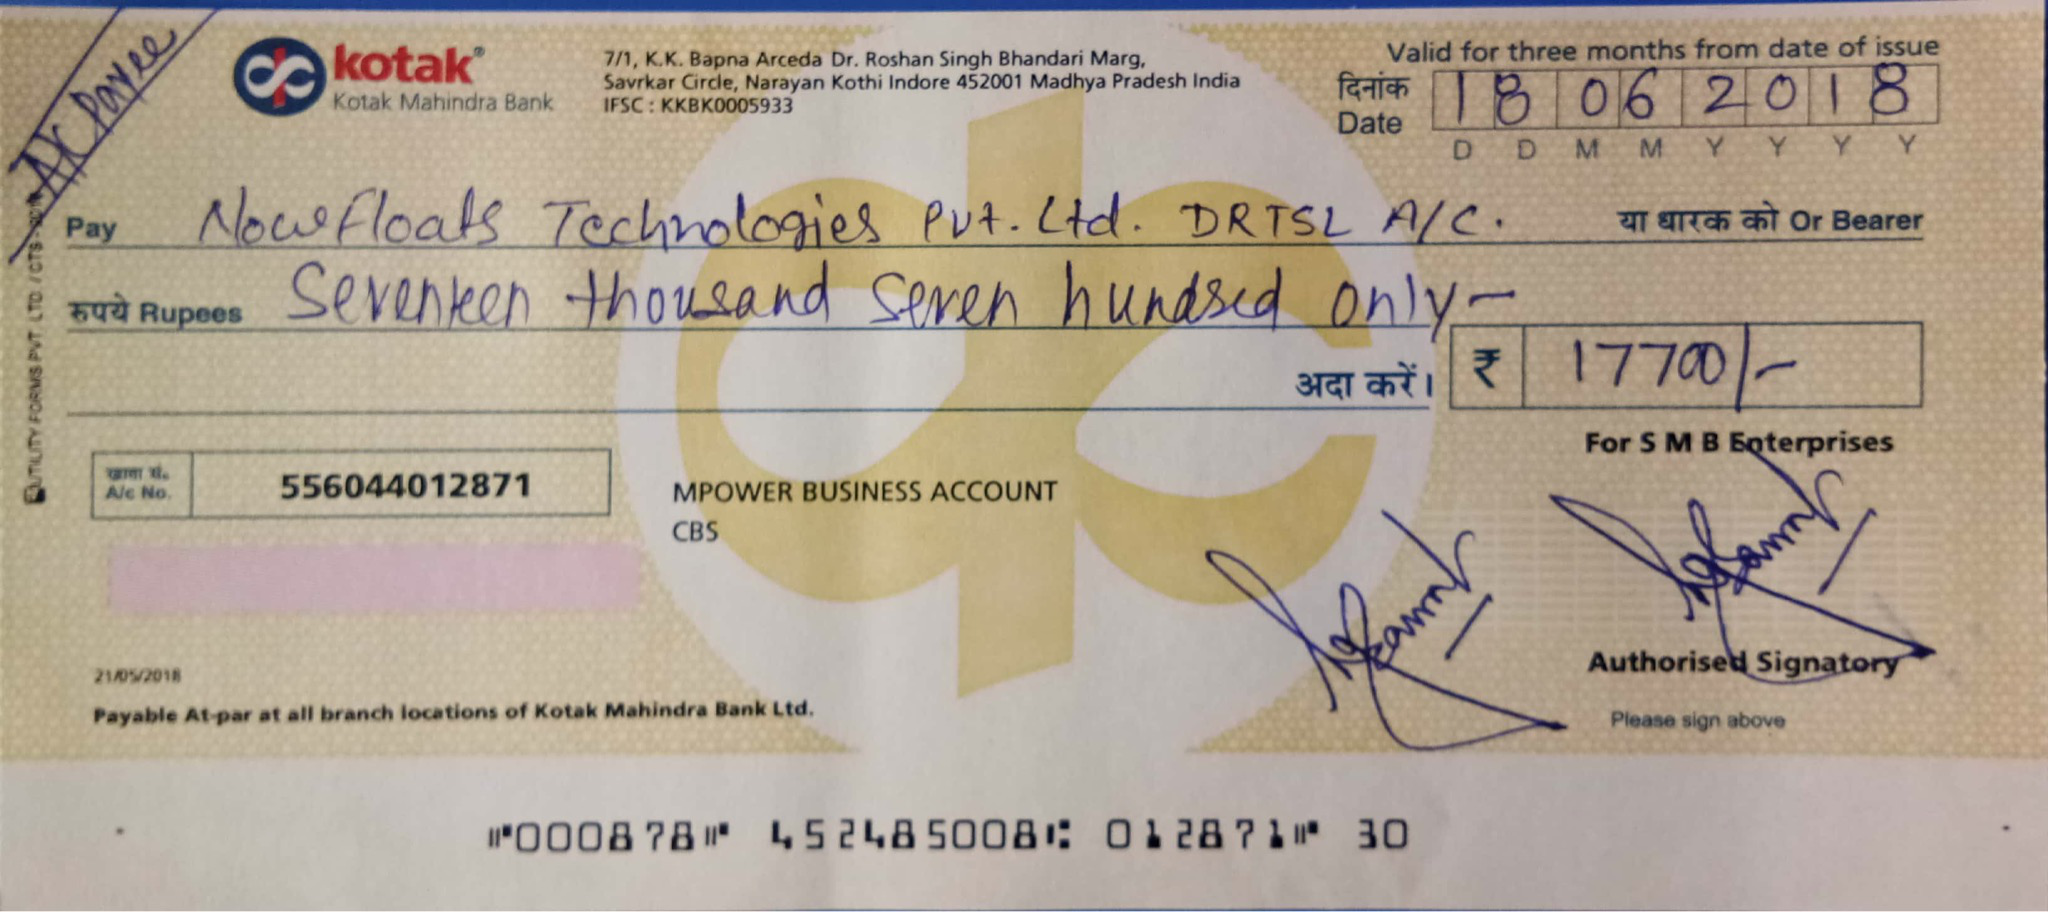 A/C Payee
kotak®
Kotak Mahindra Bank
7/1, K.K. Bapna Arceda Dr. Roshan Singh Bhandari Marg,
Savrkar Circle, Narayan Kothi Indore 452001 Madhya Pradesh India
IFSC : KKBK0005933
Valid for three months from date of issue
दिनांक 18062018
Date
D D M M Y Y Y Y
Pay Nowfloats Technologies Pvt. Ltd. DRTSL A/C. या धारक को Or Bearer
रुपये Rupees Seventeen thousand seven hundred only-
अदा करें। ₹ 17700/-
For S M B Enterprises
खाता सं.
A/c No. 556044012871
MPOWER BUSINESS ACCOUNT
CBS
21/05/2018
Payable At-par at all branch locations of Kotak Mahindra Bank Ltd.
Authorised Signatory
Please sign above
UTILITY FORMS PVT LTD / CTS
⑈000878⑈ 452485008⑆ 012871⑈ 30